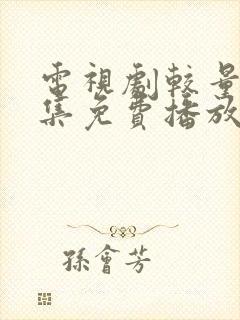 電視劇較量
集免費播放
孫會芳